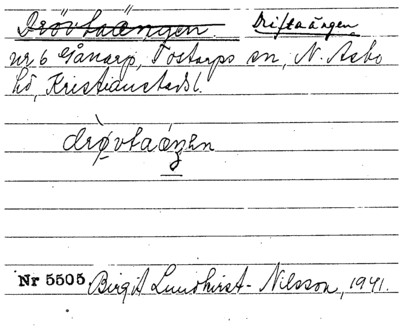 Drövtaängen. Driftaängen
nr 6 Gånarp, Tostarps sn, N. Åsbo
hd, Kristianstads l.
drö̀vtaáŋən
Nr 5505 Birgit Lundkvist-Nilsson, 1941.